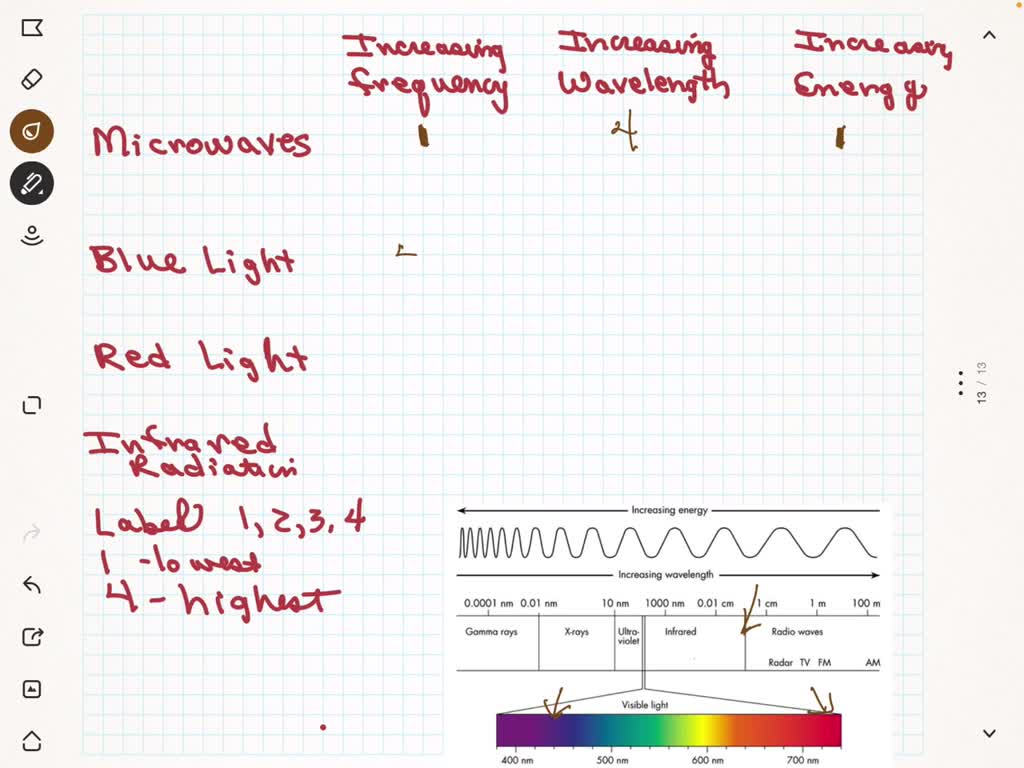 Increasing Increasing Increasing
frequency Wavelength Energy
Microwaves 1 4 1
Blue Light
Red Light
Infrared
Radiation
Label 1, 2, 3, 4
1 - lowest
4 - highest
Increasing energy
Increasing wavelength
0.0001 nm 0.01 nm 10 nm 1000 nm 0.01 cm 1 cm 1 m 100 m
Gamma rays X-rays Ultra- Infrared Radio waves
violet
Radar TV FM AM
Visible light
400 nm 500 nm 600 nm 700 nm
13 / 13